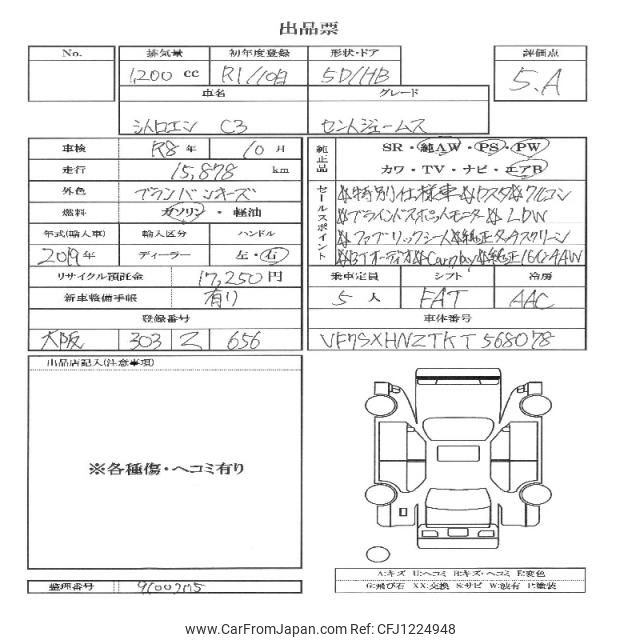 出品票
No. 排気量 初年度登録 形状・ドア 評価点
1,200 cc R1/10月 5D/HB 5.A
車名 グレード
シトロエン C3 セントジェームス
車検 R8 年 10 月
走行 15,878 km
外色 ブランバンキーズ
燃料 ガソリン ・ 軽油
年式(輸入車) 輸入区分 ハンドル
2019年 ディーラー 左・右
リサイクル預託金 17,250円
新車整備手帳 有り
登録番号
大阪 303 Z 656
純正品
SR・純AW・PS・PW
カワ・TV・ナビ・エアB
セールスポイント
特別仕様車 クルコン
ブラインドスポットモニター LDW
ファブリックシート 純正タッチスクリーン
BTオーディオ Carplay 純正16AW
乗車定員 シフト 冷房
5 人 FAT AAC
車体番号
VF7SXHNZTKT568078
出品店記入(注意事項)
※各種傷・ヘコミ有り
整理番号
A:キズ U:ヘコミ B:キズ・ヘコミ E:変色
G:飛び石 XX:交換 S:サビ W:波有 P:塗装
www.CarFromJapan.com, ID:CFJ1224948